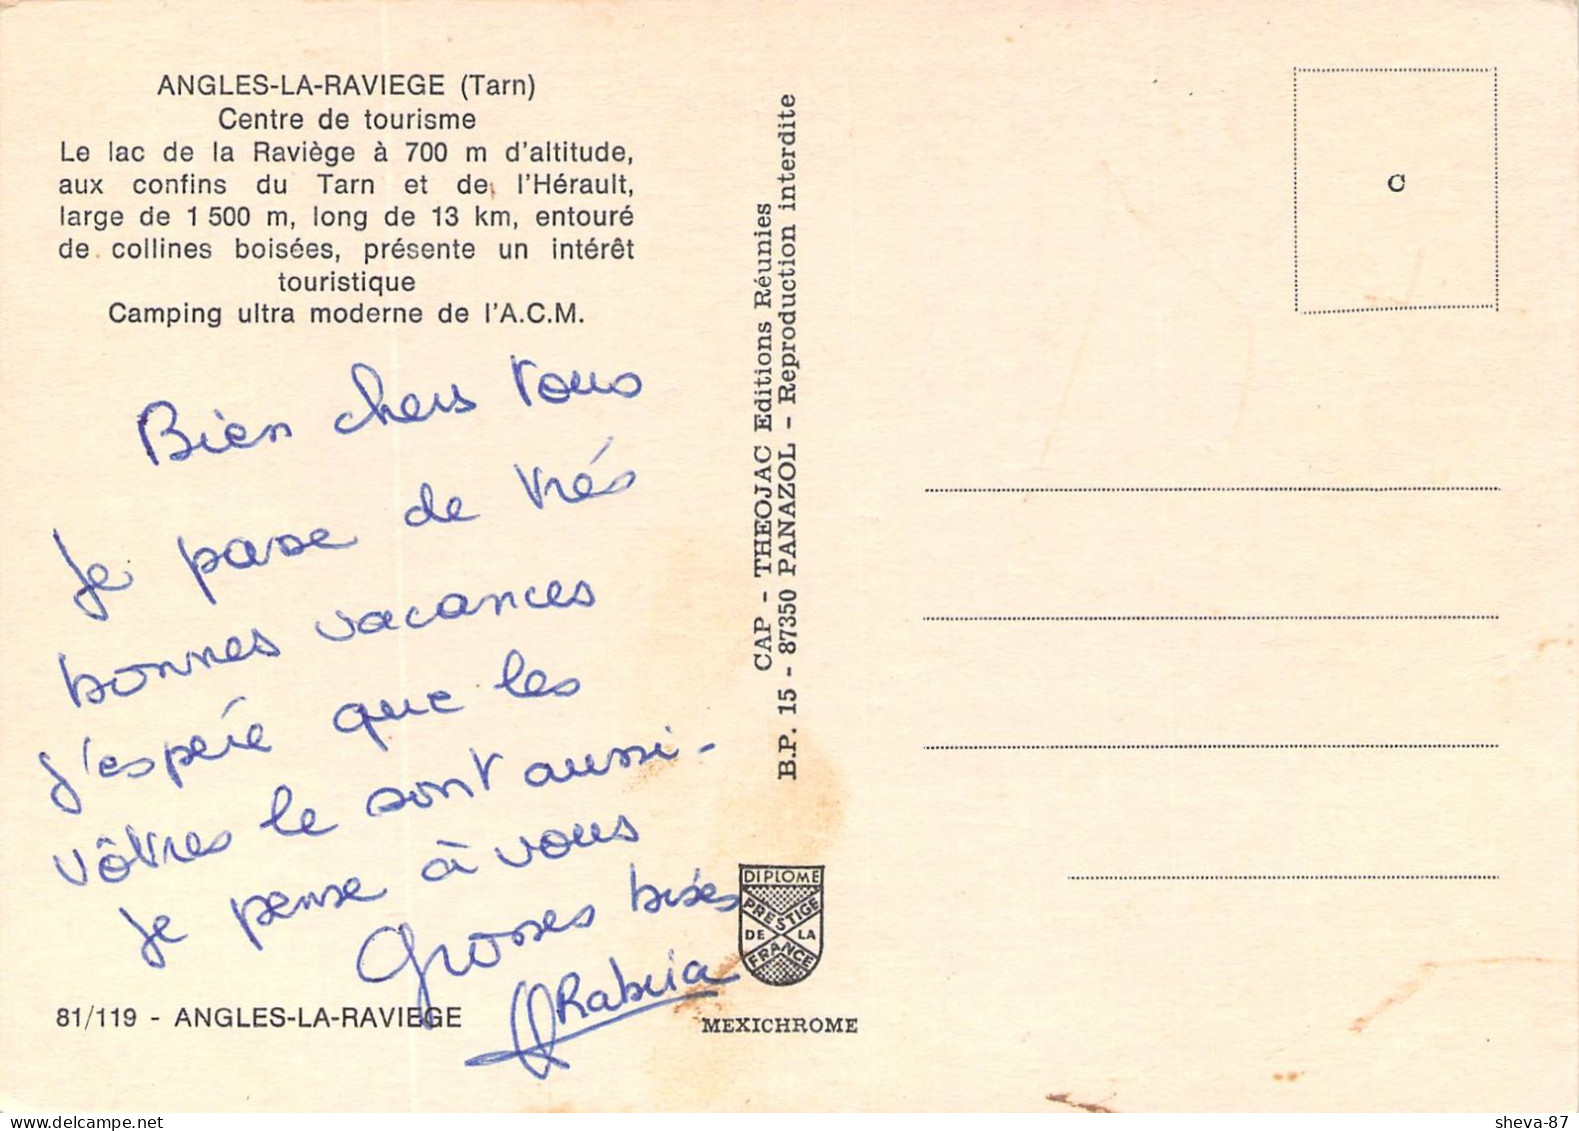 ANGLES-LA-RAVIEGE (Tarn)
Centre de tourisme
Le lac de la Raviège à 700 m d'altitude,
aux confins du Tarn et de l'Hérault,
large de 1 500 m, long de 13 km, entouré
de collines boisées, présente un intérêt
touristique
Camping ultra moderne de l'A.C.M.
Bien chers tous
Je passe de très
bonnes vacances
j'espère que les
vôtres le sont aussi-
Je pense à vous
Grosses bises
Rabia
81/119 - ANGLES-LA-RAVIEGE
CAP - THEOJAC Editions Réunies
B.P. 15 - 87350 PANAZOL - Reproduction interdite
DIPLOME
PRESTIGE
DE LA
FRANCE
MEXICHROME
C
sheva-87